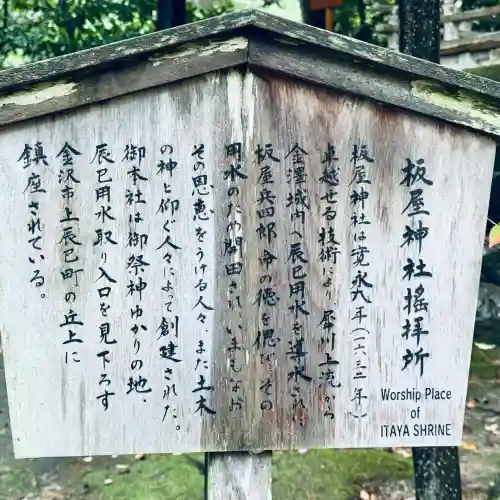 板屋神社揺拝所
Worship Place
of
ITAYA SHRINE
板屋神社は寛永九年(一六三二年)
卓越せる技術により、犀川上流から
金澤城内へ辰巳用水を導水された
板屋兵四郎命の徳を偲び、その
用水のため開田され、いまもなお
その恩恵をうける人々、また土木
の神と仰ぐ人々によって創建された。
御本社は御祭神ゆかりの地、
辰巳用水取り入口を見下ろす
金沢市上辰巳町の丘上に
鎮座されている。